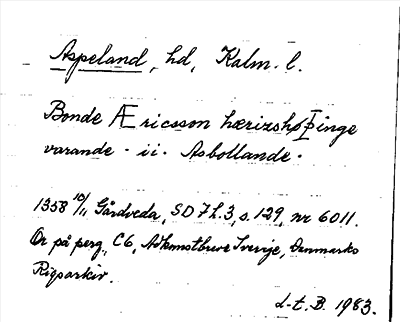 Aspeland, hd, Kalm. l.
Bonde Æricsson hærizshøþinge
varande · ii · Asbollande ·
1358 10/11 Gårdveda, SD 7 h.3, s. 129, nr 6011.
Or på perg, C6, Danmarks
Rigsarkiv.
d-t. B. 1983.